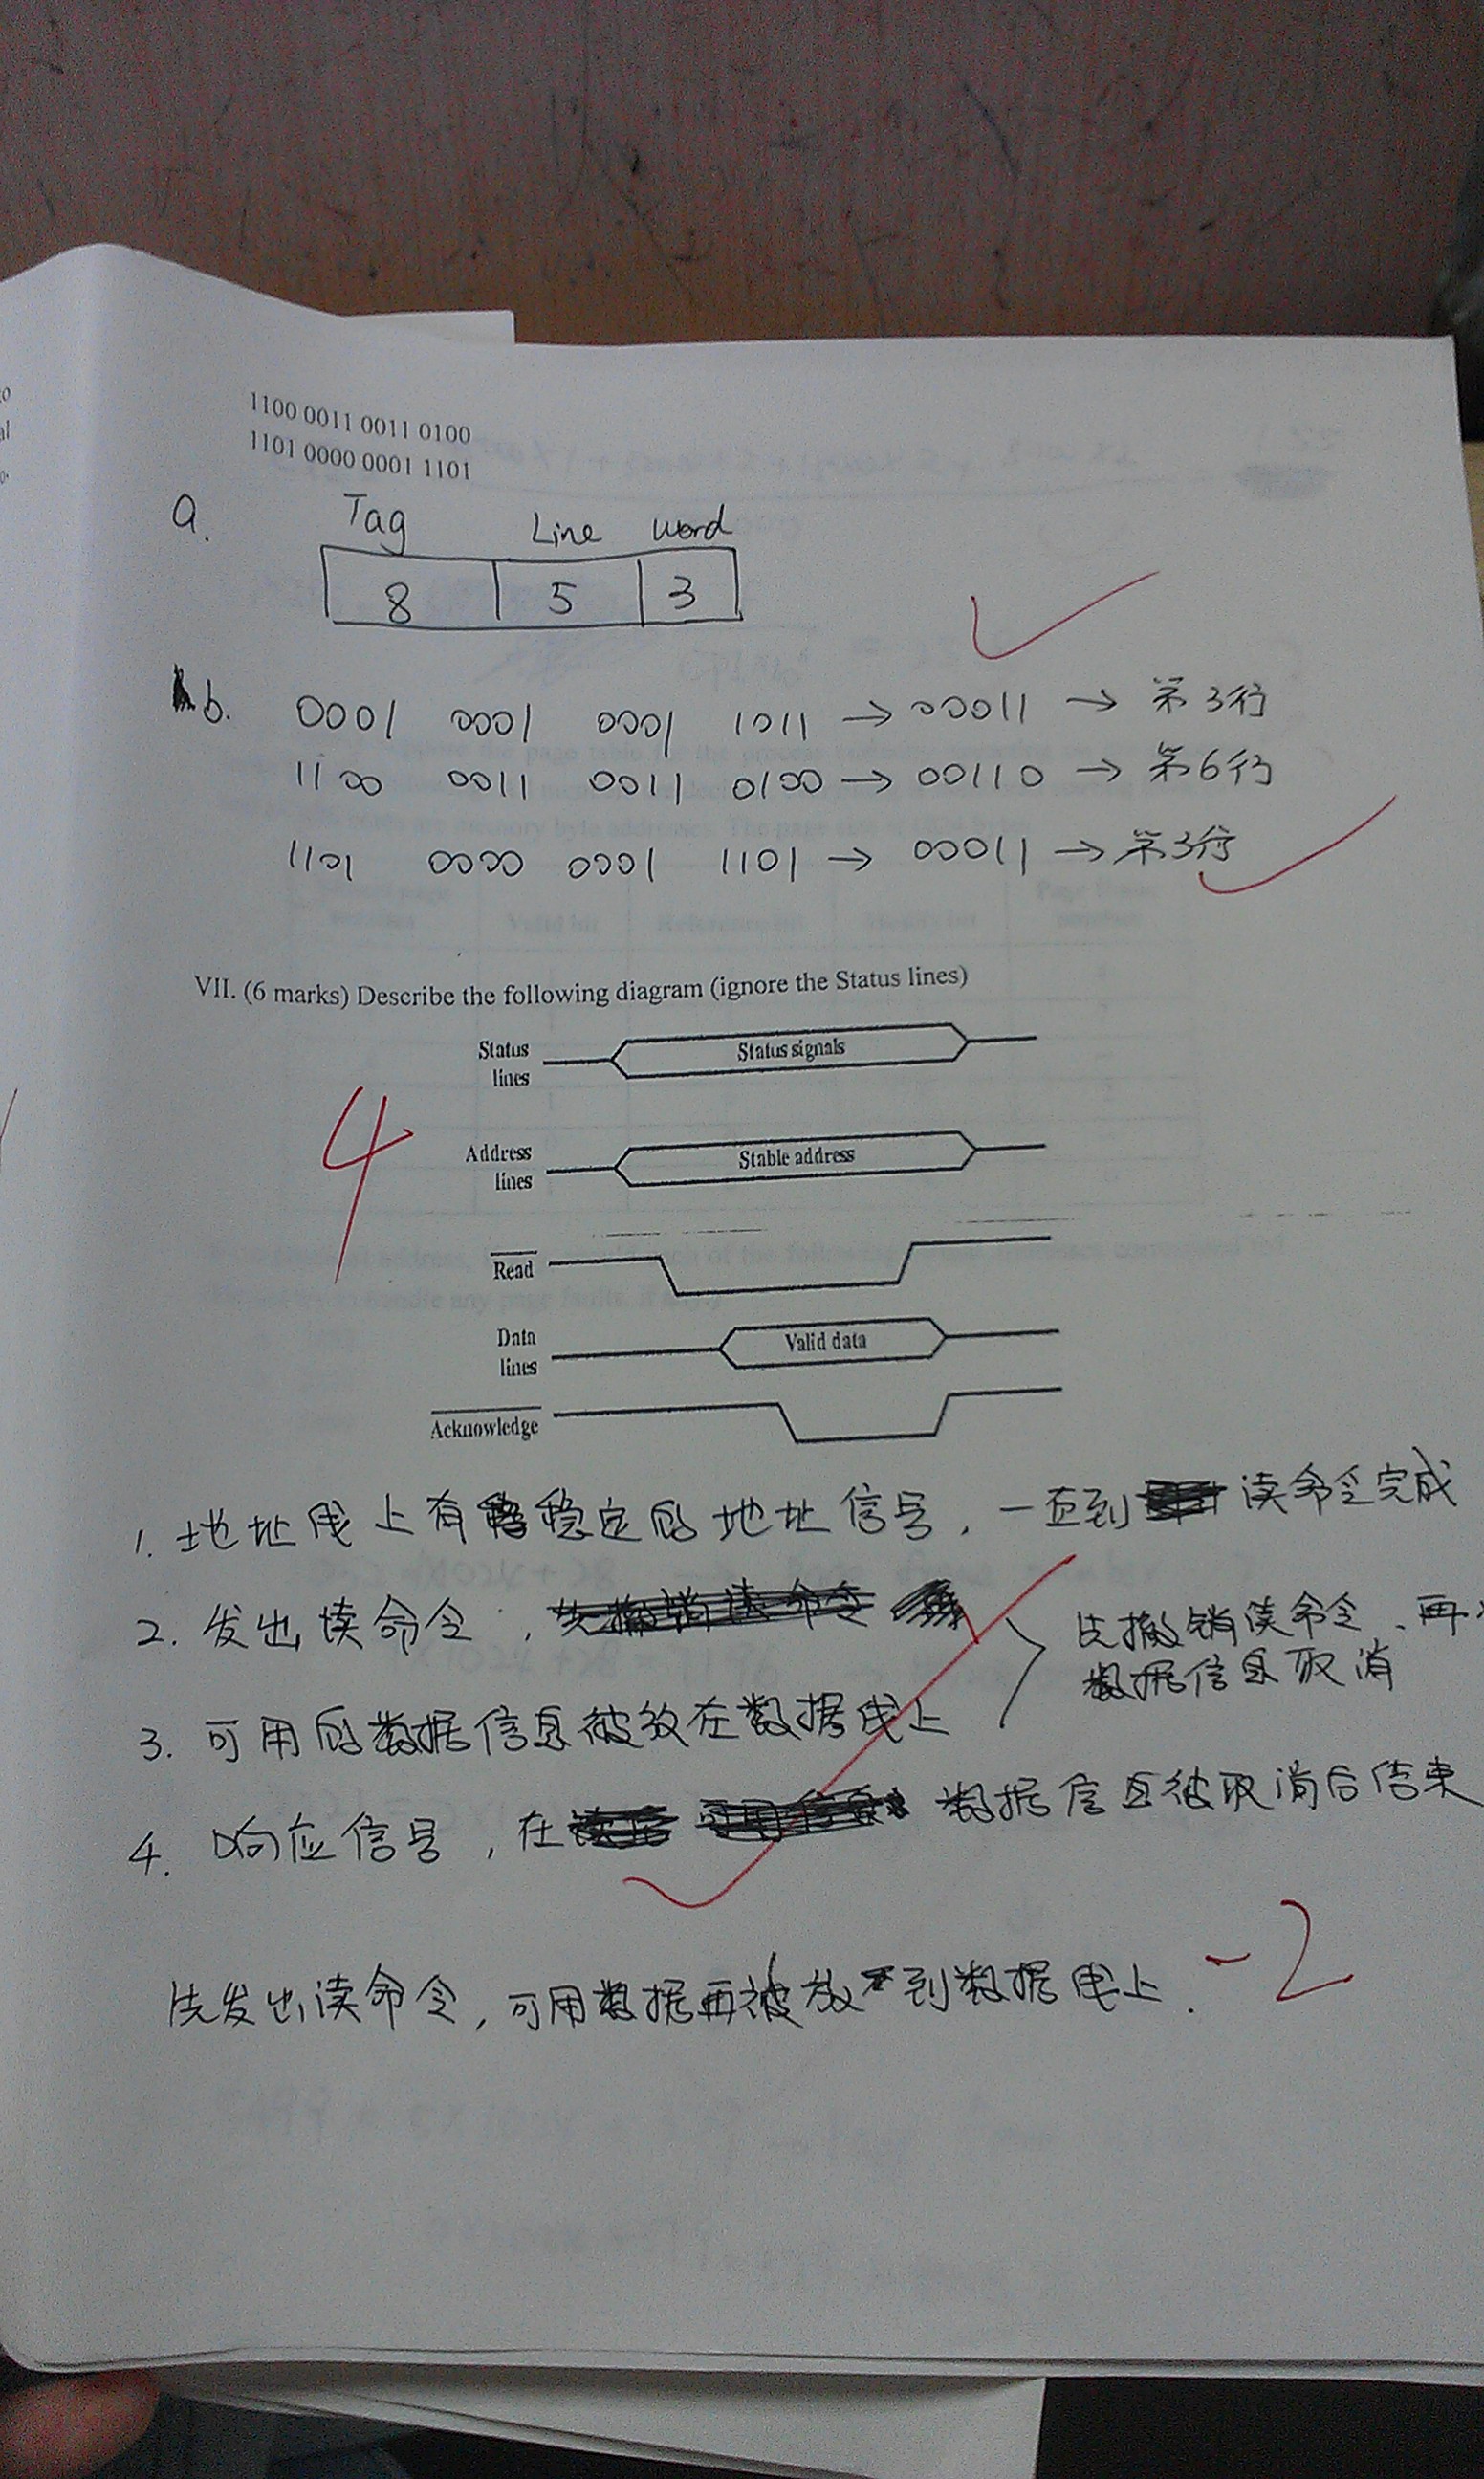 1100 0011 0011 0100
1101 0000 0001 1101
a.
Tag Line word
8 5 3
b. 0001 0001 0001 1011 → 00011 → 第3行
1100 0011 0011 0100 → 00110 → 第6行
1101 0000 0001 1101 → 00011 → 第3行
VII. (6 marks) Describe the following diagram (ignore the Status lines)
Status lines
Status signals
4
Address lines
Stable address
Read
Data lines
Valid data
Acknowledge
1. 地址线上有稳定的地址信号，一直到读命令完成
2. 发出读命令，
先撤销读命令、再
数据信息取消
3. 可用的数据信息被放在数据线上
4. 响应信号，在数据信息被取消后结束
先发出读命令，可用数据再被放到数据电上．
-2